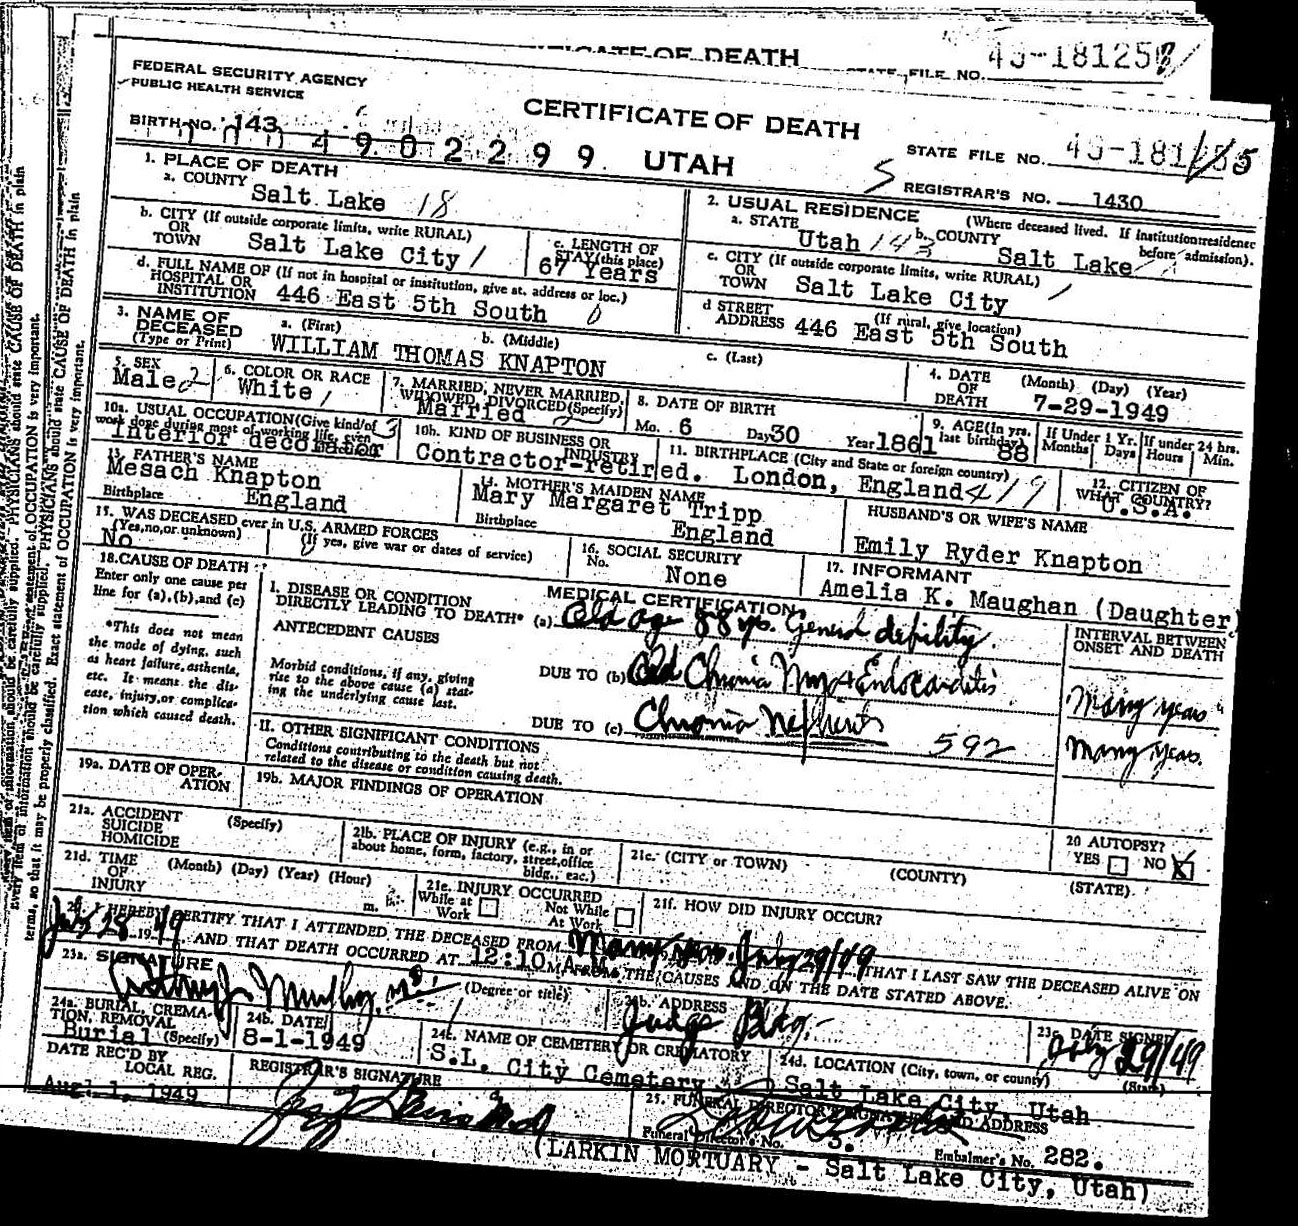 CERTIFICATE OF DEATH
STATE FILE NO.
FEDERAL SECURITY AGENCY
PUBLIC HEALTH SERVICE
CERTIFICATE OF DEATH
BIRTH NO. 143
4902299 UTAH
STATE FILE NO.
REGISTRAR'S NO. 1430
1. PLACE OF DEATH
a. COUNTY
Salt Lake 18
2. USUAL RESIDENCE (Where deceased lived. If institution: residence before admission).
a. STATE Utah 143 b. COUNTY Salt Lake
b. CITY (If outside corporate limits, write RURAL)
OR
TOWN Salt Lake City
c. LENGTH OF
STAY (this place)
67 Years
c. CITY (If outside corporate limits, write RURAL)
OR
TOWN Salt Lake City
d. FULL NAME OF (If not in hospital or institution, give st. address or loc.)
HOSPITAL OR
INSTITUTION 446 East 5th South
d STREET (If rural, give location)
ADDRESS 446 East 5th South
3. NAME OF
DECEASED
(Type or Print)
a. (First) b. (Middle) c. (Last)
WILLIAM THOMAS KNAPTON
4. DATE (Month) (Day) (Year)
OF
DEATH 7-29-1949
5. SEX
Male 2
6. COLOR OR RACE
White
7. MARRIED, NEVER MARRIED,
WIDOWED, DIVORCED (Specify)
Married
8. DATE OF BIRTH
Mo. 6 Day 30 Year 1861
9. AGE (In yrs.
last birthday)
88
If Under 1 Yr.
Months Days
If under 24 hrs.
Hours Min.
10a. USUAL OCCUPATION (Give kind of
work done during most of working life, even
Interior decorator
10b. KIND OF BUSINESS OR
INDUSTRY
Contractor-retired.
11. BIRTHPLACE (City and State or foreign country)
London, England 419
12. CITIZEN OF
WHAT COUNTRY?
U.S.A.
13. FATHER'S NAME
Mesach Knapton
Birthplace England
14. MOTHER'S MAIDEN NAME
Mary Margaret Tripp
Birthplace England
HUSBAND'S OR WIFE'S NAME
Emily Ryder Knapton
15. WAS DECEASED ever in U.S. ARMED FORCES
(Yes, no, or unknown) (If yes, give war or dates of service)
No
16. SOCIAL SECURITY
No. None
17. INFORMANT
Amelia K. Maughan (Daughter)
18. CAUSE OF DEATH
Enter only one cause per
line for (a), (b), and (c)
*This does not mean
the mode of dying, such
as heart failure, asthenia,
etc. It means the dis-
ease, injury, or complica-
tion which caused death.
MEDICAL CERTIFICATION
I. DISEASE OR CONDITION
DIRECTLY LEADING TO DEATH* (a) Old age 88 yrs. General debility.
ANTECEDENT CAUSES
Morbid conditions, if any, giving
rise to the above cause (a) stat-
ing the underlying cause last.
DUE TO (b) Old Chronic Myo + Endocarditis
DUE TO (c) Chronic Nephritis 592
INTERVAL BETWEEN
ONSET AND DEATH
Many years
Many years.
II. OTHER SIGNIFICANT CONDITIONS
Conditions contributing to the death but not
related to the disease or condition causing death.
19a. DATE OF OPER-
ATION
19b. MAJOR FINDINGS OF OPERATION
20 AUTOPSY?
YES NO X
21a. ACCIDENT
SUICIDE
HOMICIDE
(Specify)
21b. PLACE OF INJURY (e.g., in or
about home, form, factory, street, office
bldg., eac.)
21c. (CITY or TOWN) (COUNTY) (STATE)
21d. TIME
OF
INJURY
(Month) (Day) (Year) (Hour)
m.
21e. INJURY OCCURRED
While at
Work
Not While
At Work
21f. HOW DID INJURY OCCUR?
I HEREBY CERTIFY THAT I ATTENDED THE DECEASED FROM Many yrs. July 29/49 THAT I LAST SAW THE DECEASED ALIVE ON
July 28 1949 AND THAT DEATH OCCURRED AT 12:10 A M FROM THE CAUSES AND ON THE DATE STATED ABOVE.
23a. SIGNATURE (Degree or title)
23b. ADDRESS
Judge Bldg.
23c. DATE SIGNED
July 29/49
24a. BURIAL, CREMA-
TION, REMOVAL
Burial (Specify)
24b. DATE
8-1-1949
24c. NAME OF CEMETERY OR CREMATORY
S.L. City Cemetery
24d. LOCATION (City, town, or county) (State)
Salt Lake City, Utah
DATE REC'D BY
LOCAL REG.
Aug. 1, 1949
REGISTRAR'S SIGNATURE
25. FUNERAL DIRECTOR'S SIGNATURE AND ADDRESS
Funeral Director's No. 3. Embalmer's No. 282.
(LARKIN MORTUARY - Salt Lake City, Utah)